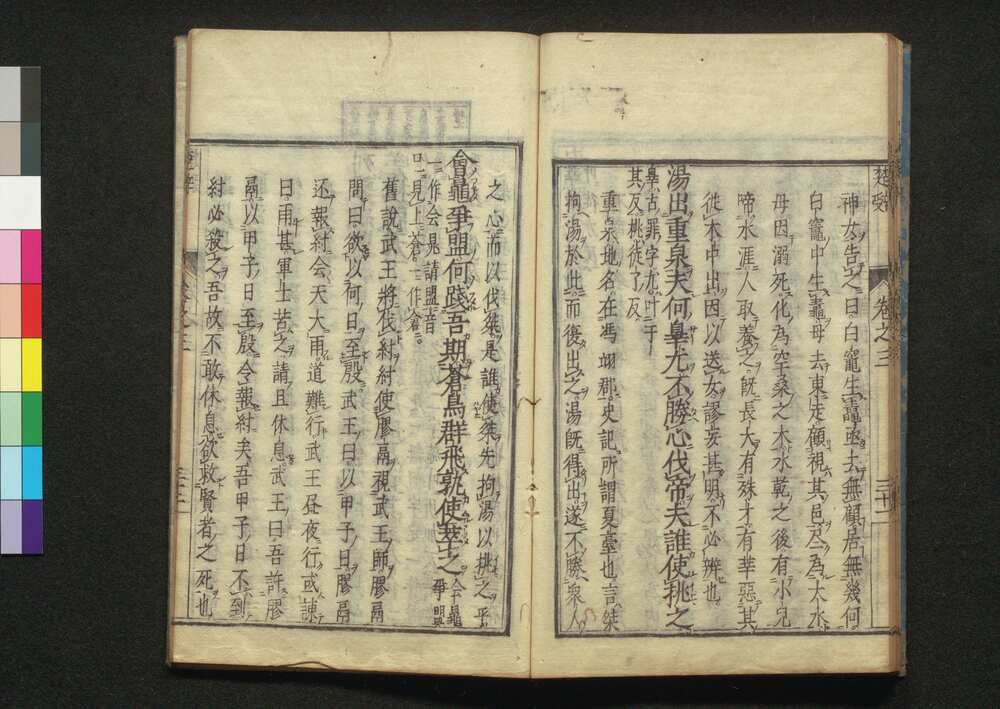 楚辭
卷之三
三十二
神女告之曰白竈生鼃亟去無顧居無幾何
白竈中生鼃母去東走顧視其邑尽為大水
母因溺死化為空桑之木水乾之後有小兒
啼水涯人取養之既長大有殊才有莘惡其
從木中出因以送女謬妄甚明不必辨也
湯出重泉夫何辠尤不勝心伐帝夫誰使挑之
辠古罪字尤叶于
其反挑徒了反
重泉地名在馮翊郡史記所謂夏臺也言桀
拘湯於此而復出之湯既得出遂不勝衆人
之心而以伐桀是誰使桀先拘湯以挑之乎
會鼂爭盟何踐吾期蒼鳥群飛孰使萃之
会鼂
爭盟
一作会晁請盟音
見上蒼一作倉
舊說武王將伐紂紂使膠鬲視武王師膠鬲
問曰欲以何日至殷武王曰以甲子日膠鬲
还報紂会天大雨道難行武王昼夜行或諫
曰雨甚軍士苦之請且休息武王曰吾許膠
鬲以甲子日至殷令報紂矣吾甲子日不到
紂必殺之吾故不敢休息欲救賢者之死也